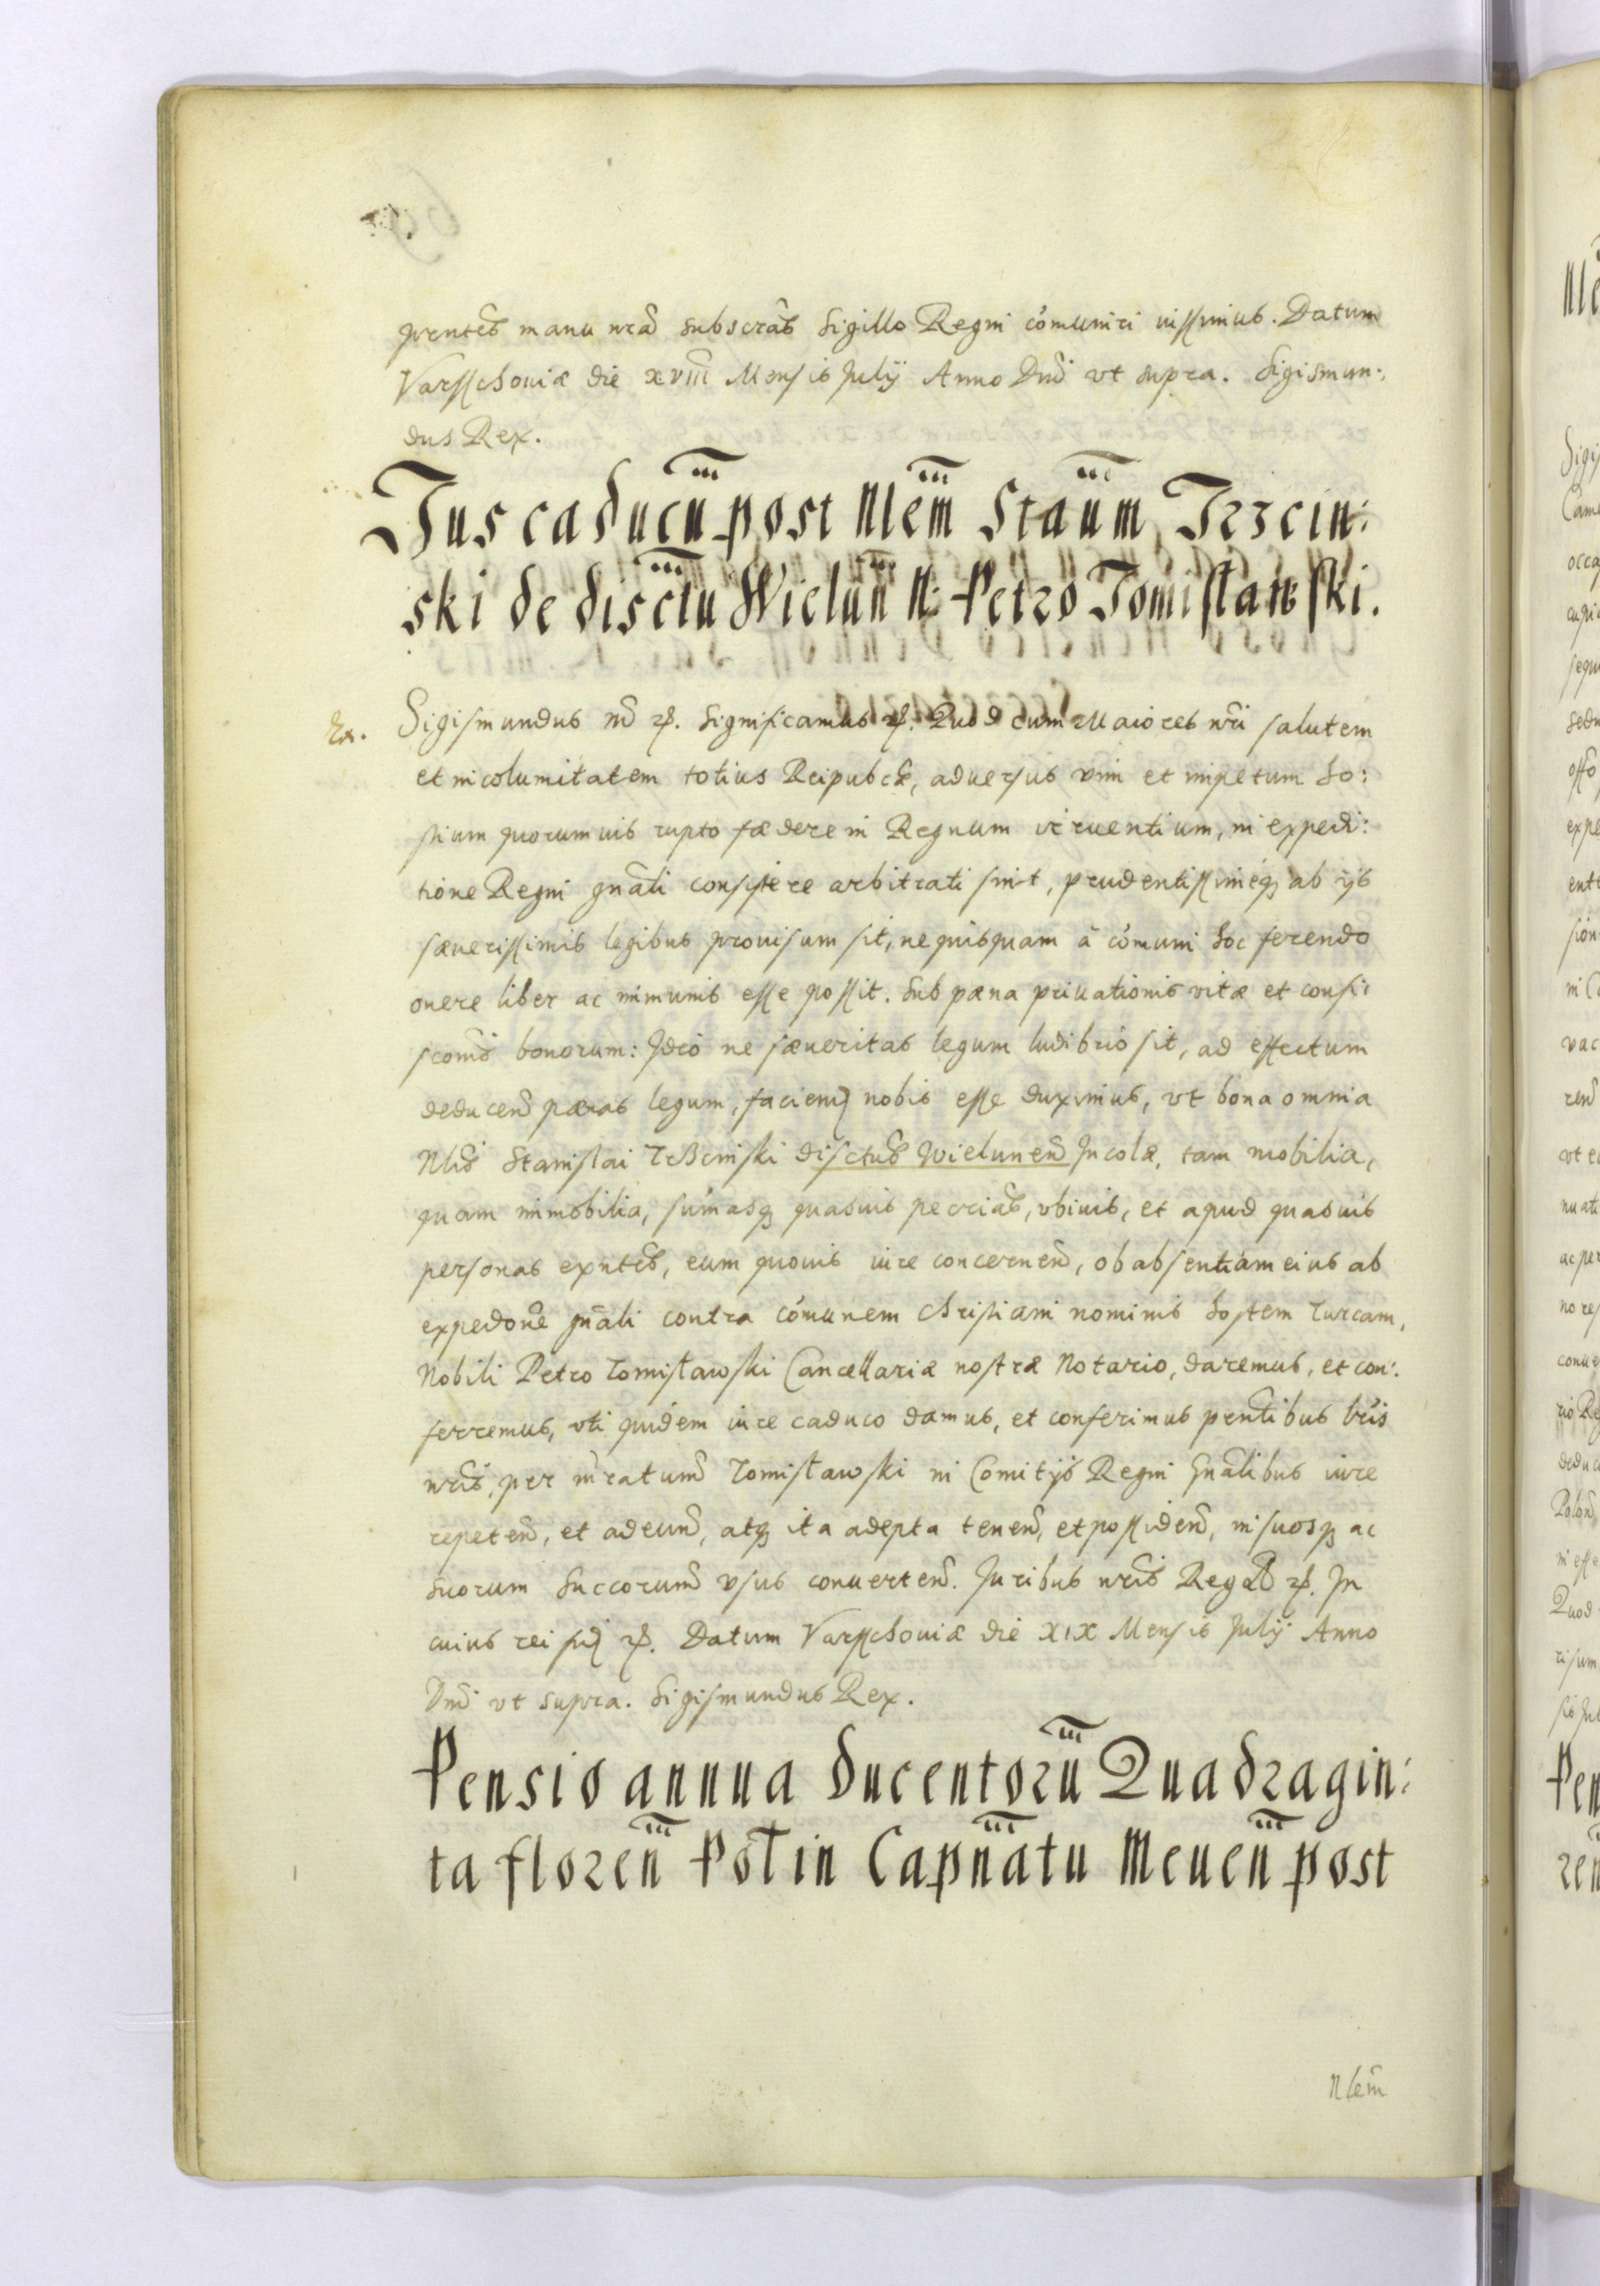 prentes manu nrã subscrãs Sigillo Regni cómuniri iussimus. Datum
Varsschouiæ die xviii Mensis Julij Anno Dni vt supra. Sigismun:
dus Rex.
Jus caducũ post Nlem̃ Staũm Trzcin:
ski de disctu Wieluñ N: Petro Tomisławski.
Ex.
Sigismundus etc. Significamus etc. Quod cum Maiores nri salutem
et incolumitatem totius Reipubcæ, aduersus vim et impetum ho:
stium quorumuis rupto fœdere in Regnum irruentium, in expedi:
tione Regni gnãli consistere arbitrati sint, prudentissimeq; ab ijs
sæuerissimis legibus prouisum sit, ne quisquam à cómuni hoc ferendo
onere liber ac immunis esse possit. Sub pæna priuationis vitæ et confi:
scomis bonorum: Ideo ne sæueritas legum ludibrio sit, ad effectum
deducend pænas legum, faciend nobis esse duximus, vt bona omnia
Nlis Stanislai Trzcinski disctus Wielunen Incolæ, tam mobilia,
quam immobilia, súmasq; quasuis pecrias, vbiuis, et apud quasuis
personas exntes, eum quouis iure concernen, ob absentiam eius ab
expedone gnãli contra cómunem christiani nominis hostem Turcam,
Nobili Petro Tomisławski Cancellariæ nostræ Notario, daremus, et con:
ferremus, vti quidem iure caduco damus, et conferimus prentibus lris
nris, per mratum Tomisławski in Comitijs Regni gnãlibus iure
repeten, et adeund, atq; ita adepta tenen, et possiden, in suosq; ac
suorum Succorum vsus conuerten. Juribus nris Regal etc. In
cuius rei fid etc. Datum Varsschouiæ die xix Mensis Julij Anno
Dni vt supra. Sigismundus Rex.
Pensio annua Ducentorũ Quadragin:
ta floreñ Pol in Capñatu Meueñ post
Nlem̃